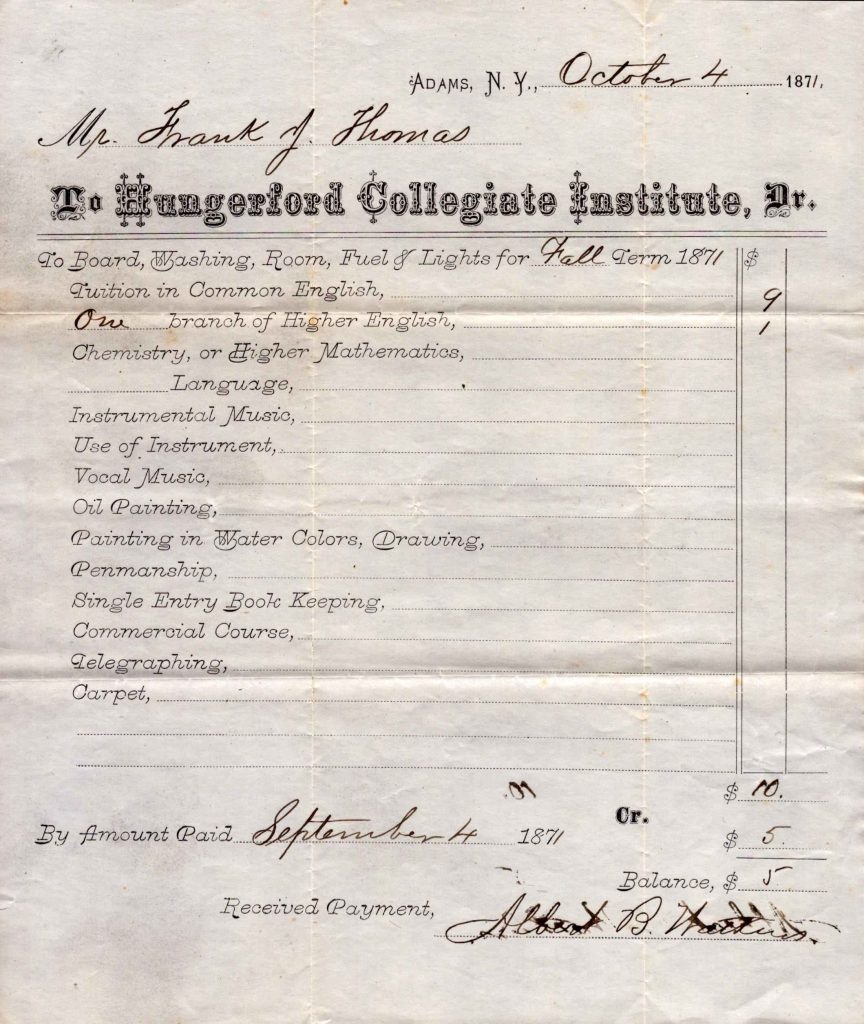 Adams, N. Y., October 4 1871,
Mr. Frank J. Thomas
To Hungerford Collegiate Institute, Dr.
To Board, Washing, Room, Fuel & Lights for Fall Term 1871 $
Tuition in Common English, 9
One branch of Higher English, 1
Chemistry, or Higher Mathematics,
Language,
Instrumental Music,
Use of Instrument,
Vocal Music,
Oil Painting,
Painting in Water Colors, Drawing,
Penmanship,
Single Entry Book Keeping,
Commercial Course,
Telegraphing,
Carpet,
$ 10.
Cr.
By Amount Paid September 4 1871 $ 5
Balance, $ 5
Received Payment, Albert B. Watkins.